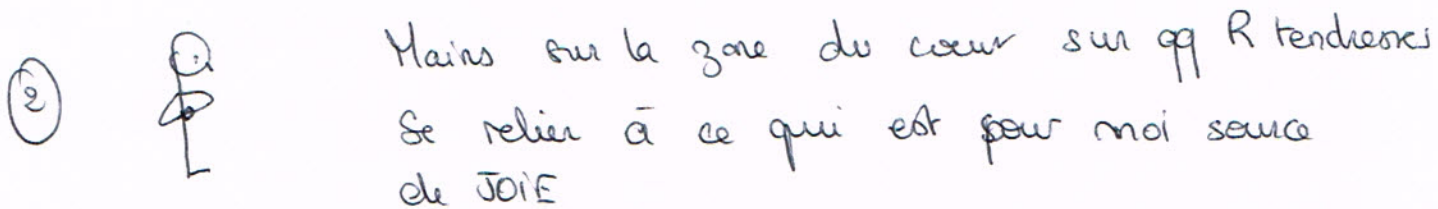 ② Mains sur la zone du cœur sur qq R tendresses
Se relier à ce qui est pour moi source
de JOIE